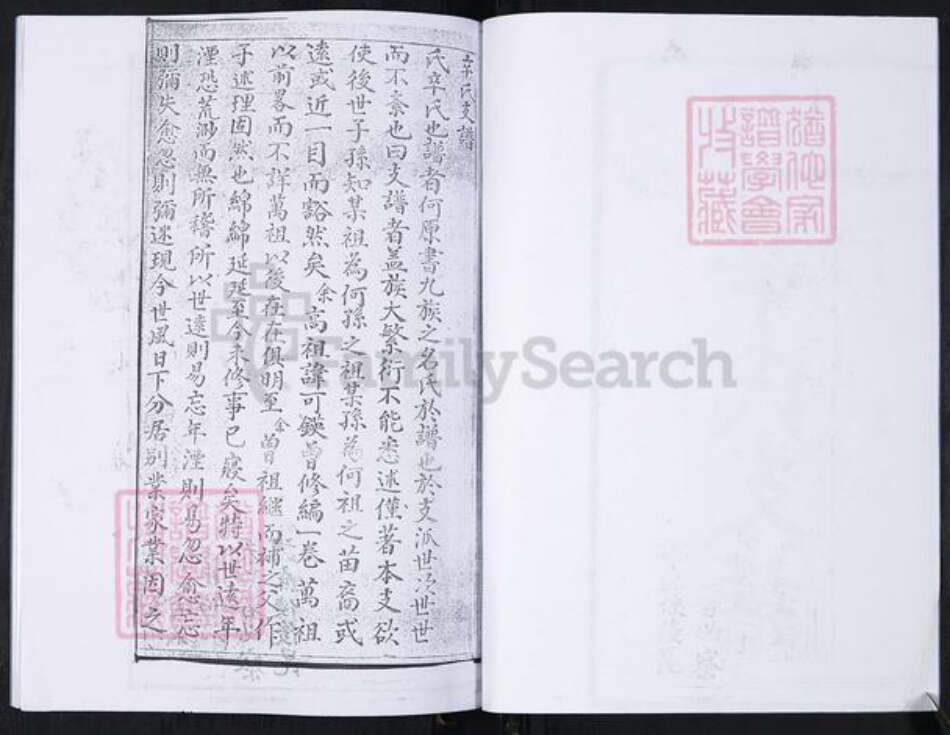 辛氏支譜
氏辛氏也譜者何原書九族之名氏於譜也於支派世次世世
而不紊也曰支譜者盖族大繁衍不能悉述僅著本支欲
使後世子孫知某祖為何孫之祖某孫為何祖之苗裔或
遠或近一目而豁然矣余高祖諱可鍈曾修編一卷萬祖
以前畧而不詳萬祖以後在在俱明至余曾祖繼而補之父作
子述理固然也綿綿延延至今未修事已寢矣特以世遠年
湮恐荒渺而無所稽所以世遠則易忘年湮則易忽愈忘
則彌失愈忽則彌迷現今世風日下分居別業家業因之
FamilySearch
譜學會
收藏